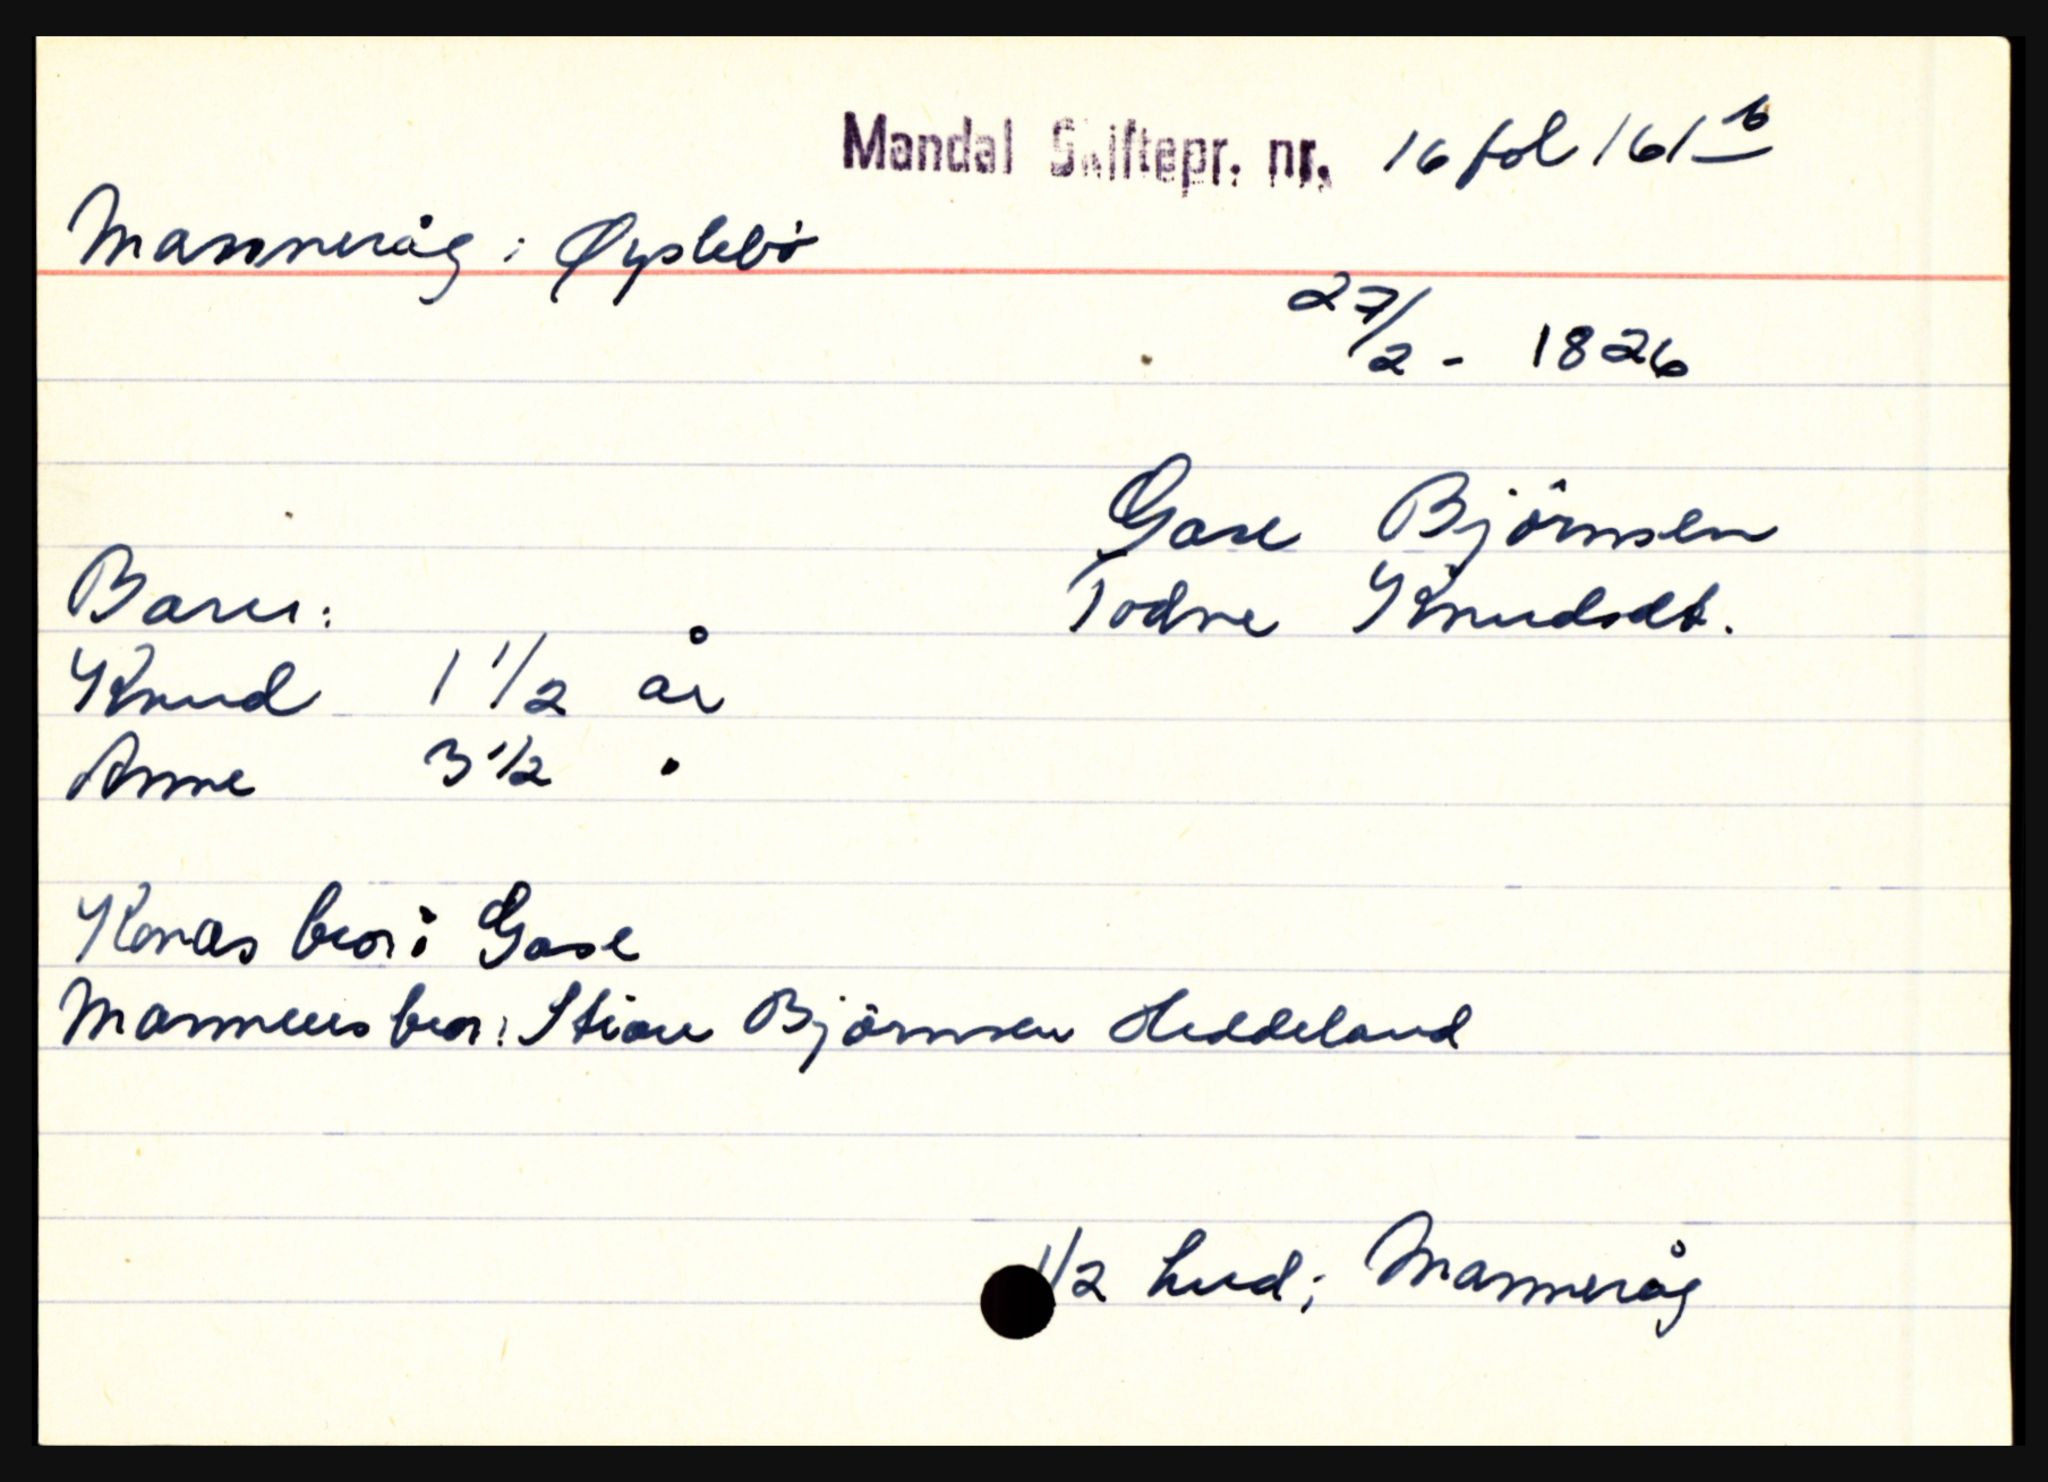 Mandal Skiftepr. nr. 16 fol 161 b
Manneråg i Øyslebö
27/2 - 1826
Gase Björnsen
Barn: Todne Knudsdt.
Knud 1 1/2 år
Anne 3 1/2 "
Konas bror: Gase
Mannens bror: Stian Björnsen Heddeland
1/2 hud i Manneråg